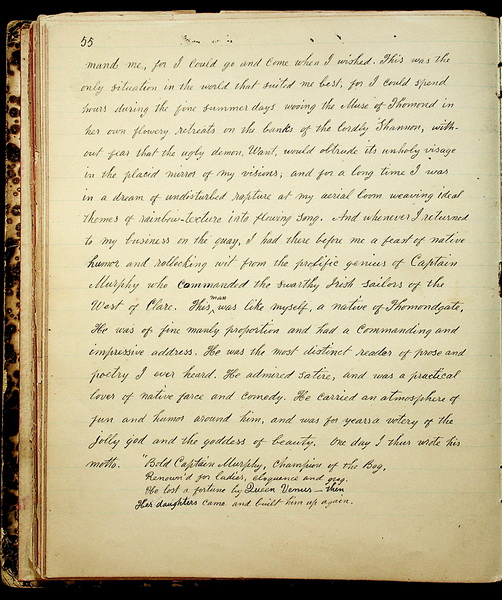 55
mand me, for I could go and come when I wished. This was the
only situation in the world that suited me best, for I could spend
hours during the fine summer days wooing the Muse of Thomond in
her own flowery retreats on the banks of the lordly Shannon, with-
out fear that the ugly demon, Want, would obtrude its unholy visage
in the placid mirror of my visions; and for a long time I was
in a dream of undisturbed rapture at my aerial loom weaving ideal
themes of rainbow-texture into flowing song. And whenever I returned
to my business on the quay, I had there before me a feast of native
humor and rollocking wit from the prolific genius of Captain
Murphy who commanded the swarthy Irish Sailors of the
West of Clare. This man was like myself, a native of Thomondgate,
He was of fine manly proportion and had a commanding and
impressive address. He was the most distinct reader of prose and
poetry I ever heard. He admired satire, and was a practical
lover of native farce and comedy. He carried an atmosphere of
fun and humor around him, and was for years a votery of the
jolly god and the goddess of beauty. One day I thus wrote his
motto. "Bold Captain Murphy, Champion of the Bog,
Renown'd for ladies, eloquence and grog,
He lost a fortune by Queen Venus — then
Her daughters came and built him up again.